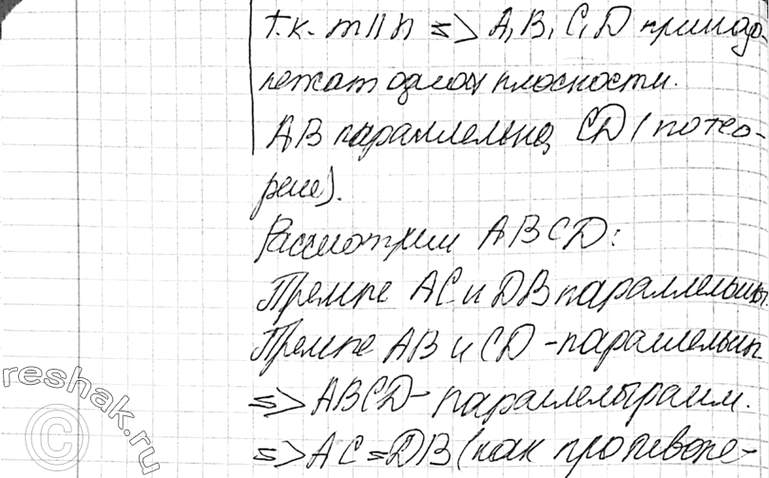 т.к. m || n => A, B, C, D принад-
лежат одной плоскости.
AB параллельна CD (по тео-
реме).
Рассмотрим ABCD:
Прямые AC и DB параллельны.
Прямые AB и CD - параллельны
=> ABCD - параллелграмм.
=> AC = DB (как противопо-
reshak.ru